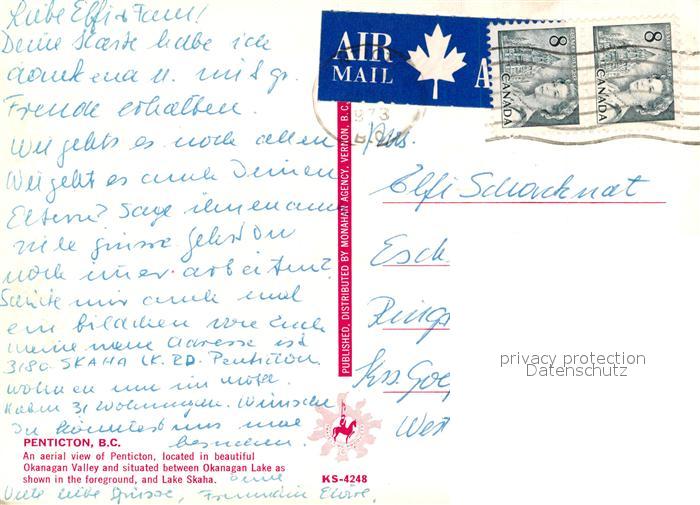 Liebe Elfi & Fam!
Deine Karte habe ich
dankend u. mit gr.
Freude erhalten.
Wie gehts es noch allen
Wie geht es auch Deinen
Eltern? Sage ihnen auch
viele grüsse gehst Du
noch imer arbeiten?
Schicke mir auch mal
ein bildchen von Euch
meine neue Adresse ist
3180 SKAHA LK. RD. Penticton
wohnen nun im
Haben 31 Wohnungen. Wünsche
Du könntest uns mal
besuchen.
PENTICTON, B.C.
An aerial view of Penticton, located in beautiful
Okanagan Valley and situated between Okanagan Lake as
shown in the foreground, and Lake Skaha.
Deine
Viele liebe Grüsse, Freundin
KS-4248
PUBLISHED, DISTRIBUTED BY MONAHAN AGENCY, VERNON, B.C.
AIR
MAIL
A
8
CANADA
8
CANADA
1973
B.C.
Mrs.
Elfi Schacknat
Esch
Ring
Krs. Goe
West
privacy protection
Datenschutz